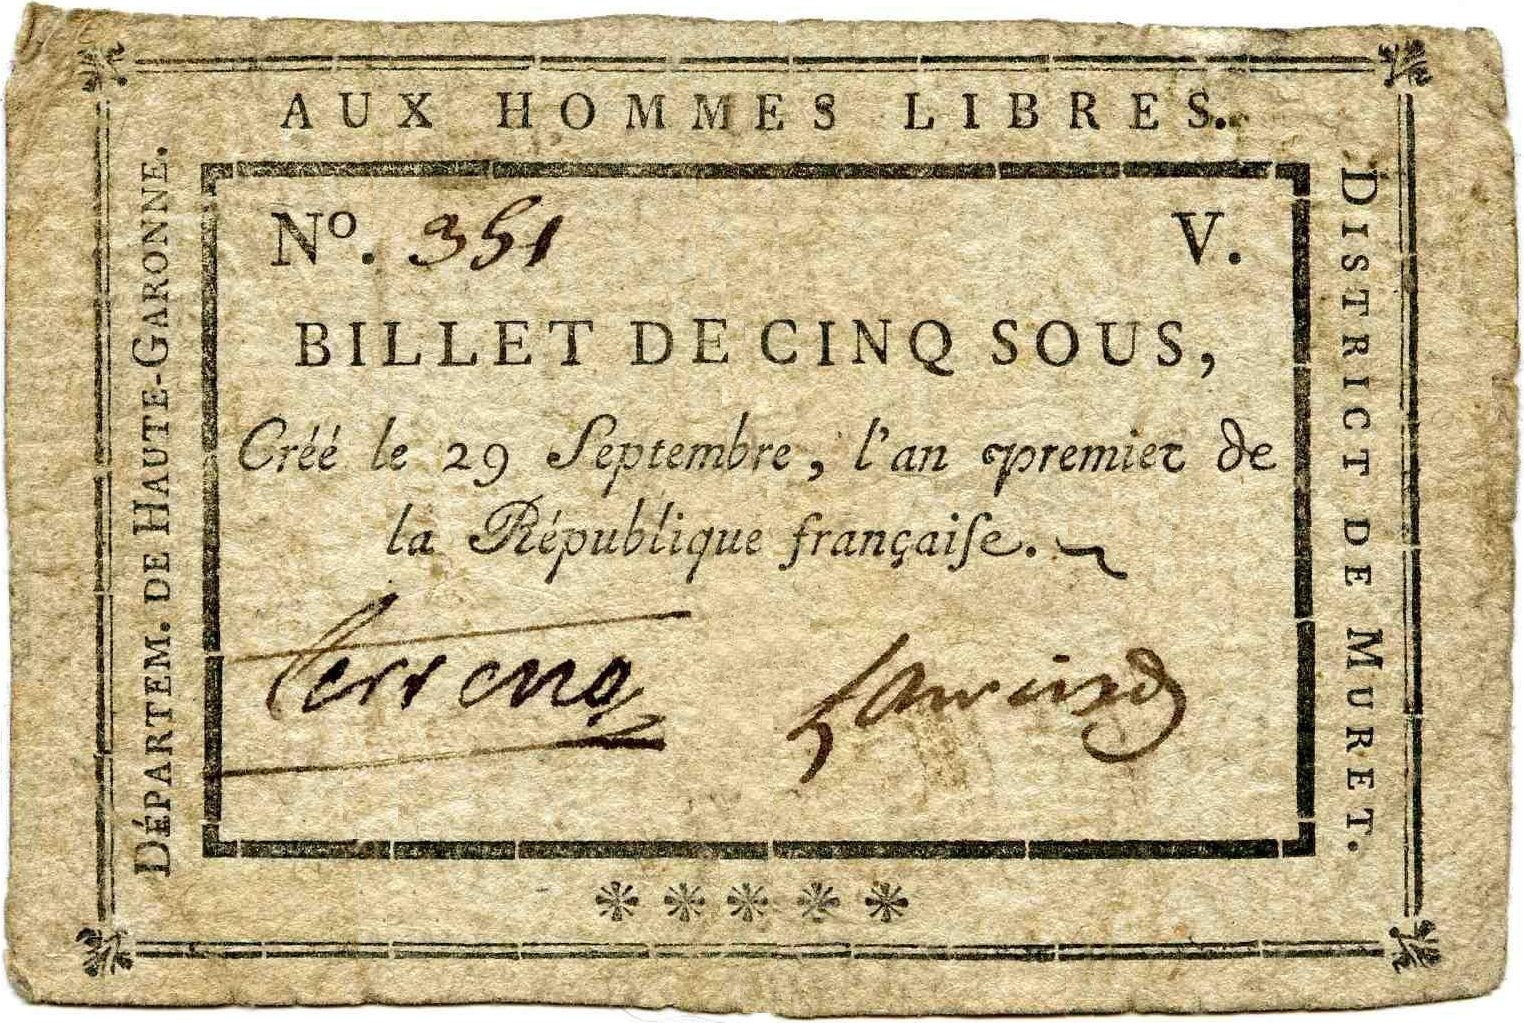 AUX HOMMES LIBRES.
DÉPARTEM. DE HAUTE-GARONNE.
Nº. 351
V.
BILLET DE CINQ SOUS,
Créé le 29 Septembre, l'an premier de
la République françaiſe.
DISTRICT DE MURET.